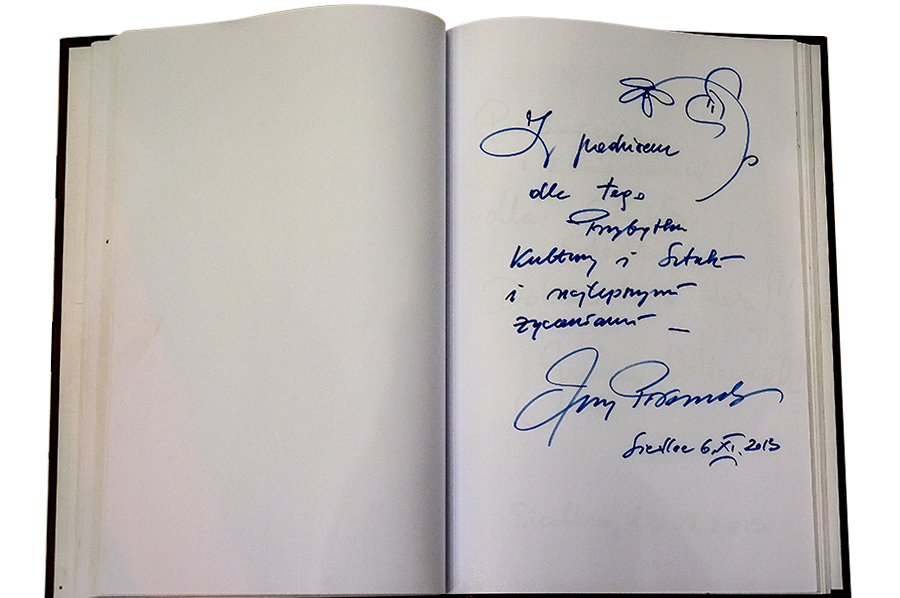 Z podziwem
dla tego
Przybytku
Kultury i Sztuki
i najlepszymi
życzeniami –
Jerzy
Siedlce 6.XI.2013